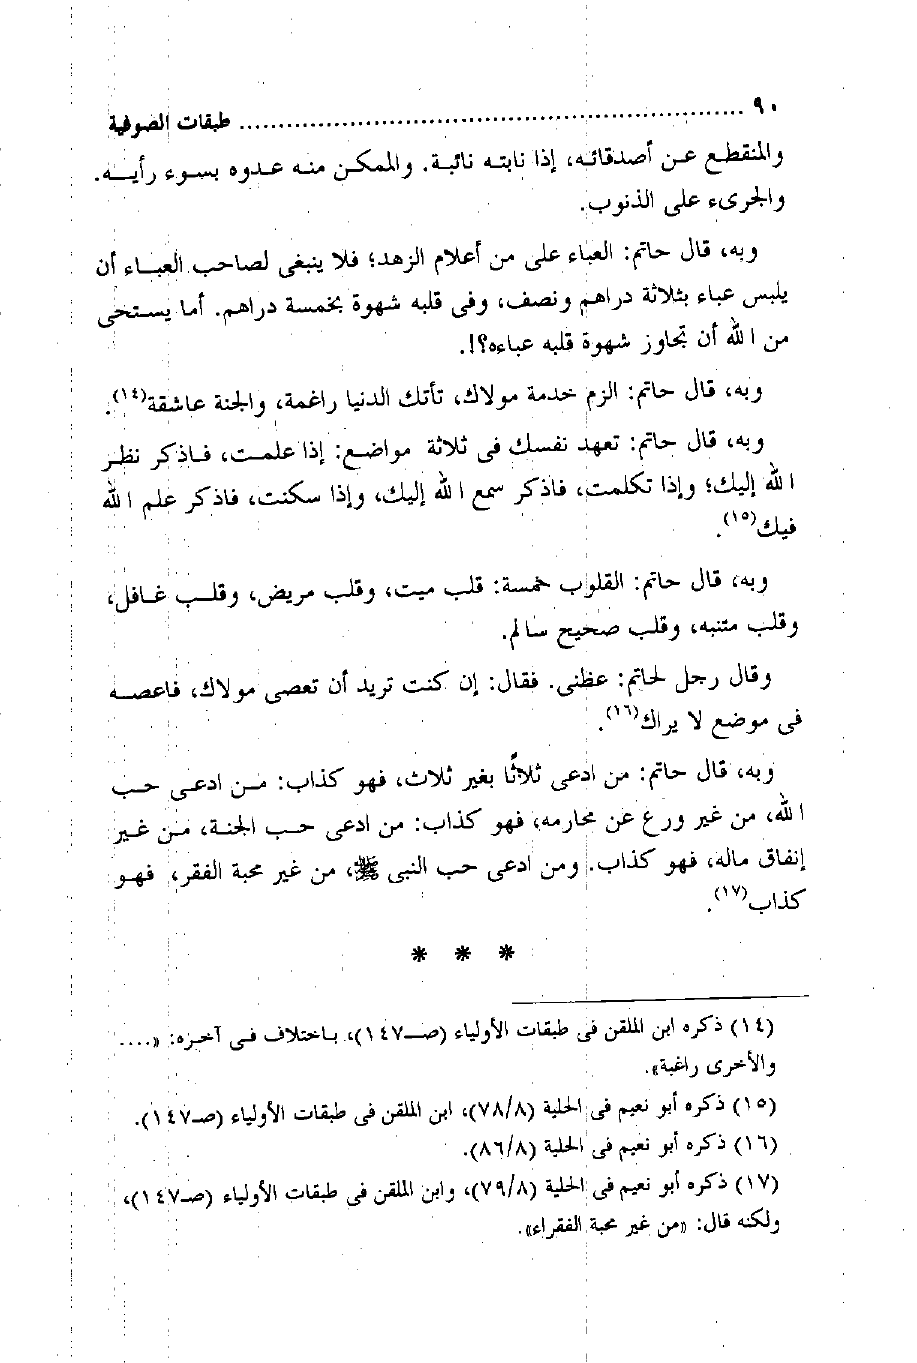 ٩٠ ................................................................ طبقات الصوفية
والمنقطع عن أصدقائه، إذا نابته نائبة. والممكن منه عدوه بسوء رأيه.
والجرىء على الذنوب.
وبه، قال حاتم: العباء على من أعلام الزهد؛ فلا ينبغى لصاحب العباء أن
يلبس عباء بثلاثة دراهم ونصف، وفى قلبه شهوة بخمسة دراهم. أما يستحى
من الله أن تجاوز شهوة قلبه عباءه؟!.
وبه، قال حاتم: الزم خدمة مولاك، تأتك الدنيا راغمة، والجنة عاشقة(١٤).
وبه، قال حاتم: تعهد نفسك فى ثلاثة مواضع: إذا علمت، فاذكر نظر
الله إليك؛ وإذا تكلمت، فاذكر سمع الله إليك، وإذا سكنت، فاذكر علم الله
فيك(١٥).
وبه، قال حاتم: القلوب خمسة: قلب ميت، وقلب مريض، وقلب غافل،
وقلب متنبه، وقلب صحيح سالم.
وقال رجل لحاتم: عظنى. فقال: إن كنت تريد أن تعصى مولاك، فاعصه
فى موضع لا يراك(١٦).
وبه، قال حاتم: من ادعى ثلاثًا بغير ثلاث، فهو كذاب: من ادعى حب
الله، من غير ورع عن محارمه، فهو كذاب: من ادعى حب الجنة، من غير
إنفاق ماله، فهو كذاب. ومن ادعى حب النبى ﷺ، من غير محبة الفقر، فهو
كذاب(١٧).
* * *
(١٤) ذكره ابن الملقن فى طبقات الأولياء (صـ١٤٧)، باختلاف فى آخره: «....
والأخرى راغبة».
(١٥) ذكره أبو نعيم فى الحلية (٧٨/٨)، ابن الملقن فى طبقات الأولياء (صـ١٤٧).
(١٦) ذكره أبو نعيم فى الحلية (٨٦/٨).
(١٧) ذكره أبو نعيم فى الحلية (٧٩/٨)، وابن الملقن فى طبقات الأولياء (صـ١٤٧)،
ولكنه قال: «من غير محبة الفقراء».